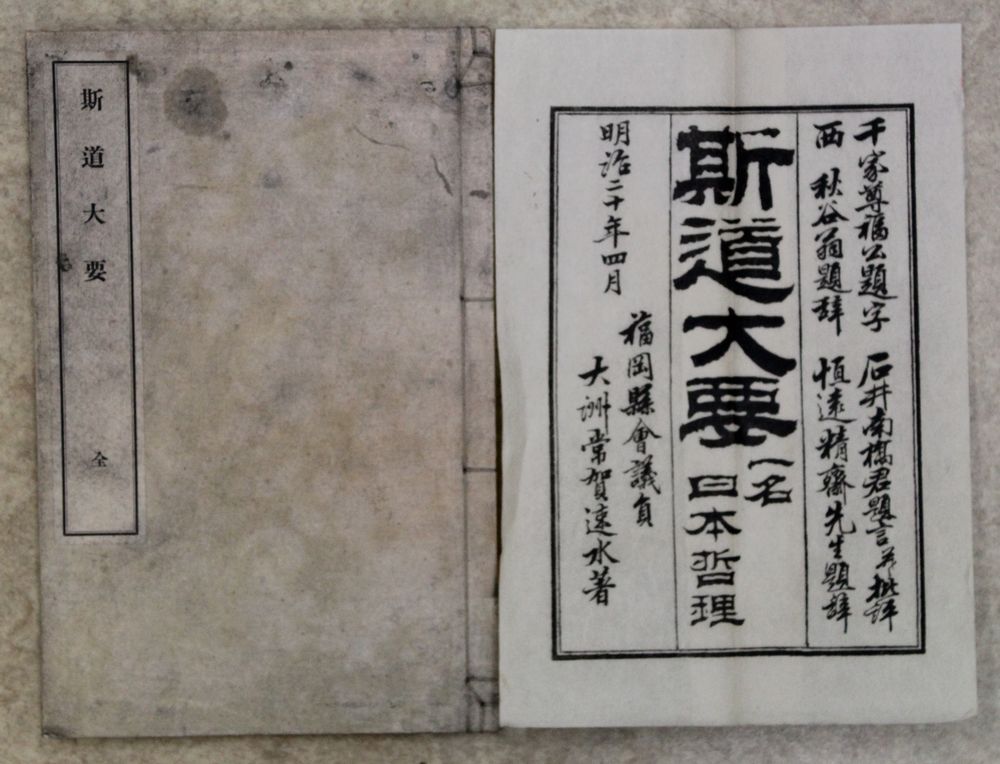 斯道大要
全
千家尊福公題字 石井南橋君題言並批評
西 秋谷翁題辞 恒遠精齋先生題辞
斯道大要
一名
日本哲理
明治二十年四月
福岡縣會議員
大洲常賀遠水著